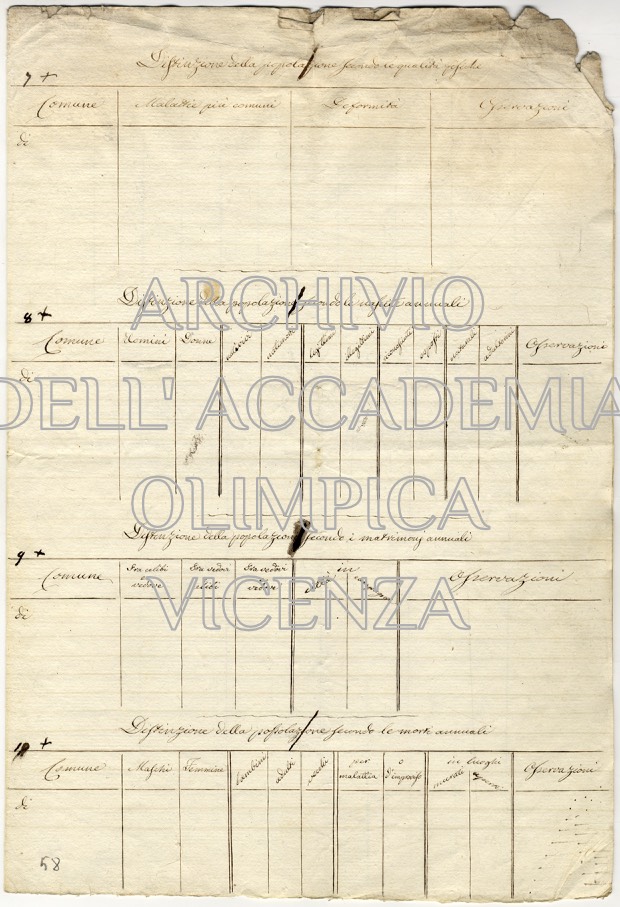 Distinzione della popolazione secondo le qualità fisiche
7 +
Comune Malattie più comuni Deformità Osservazioni
di
Distinzione della popolazione secondo le nascite annuali
8 +
Comune Uomini Donne legittimi illegittimi esposti Osservazioni
di
ARCHIVIO
DELL' ACCADEMIA
OLIMPICA
VICENZA
Distinzione della popolazione secondo i matrimonj annuali
9 +
Comune Fra celibi Fra vedovi Fra vedovi in Osservazioni
vedove celibi vedove città
di
Distinzione della popolazione secondo le morti annuali
10 +
Comune Maschi Femmine bambini adulti vecchi per o in luoghi Osservazioni
malattia d'improviso murato aperto
di
58